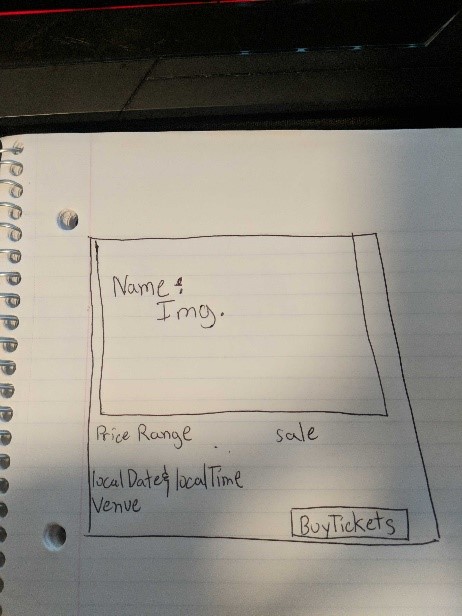 Name &
Img.
Price Range
sale
localDate & localTime
Venue
BuyTickets